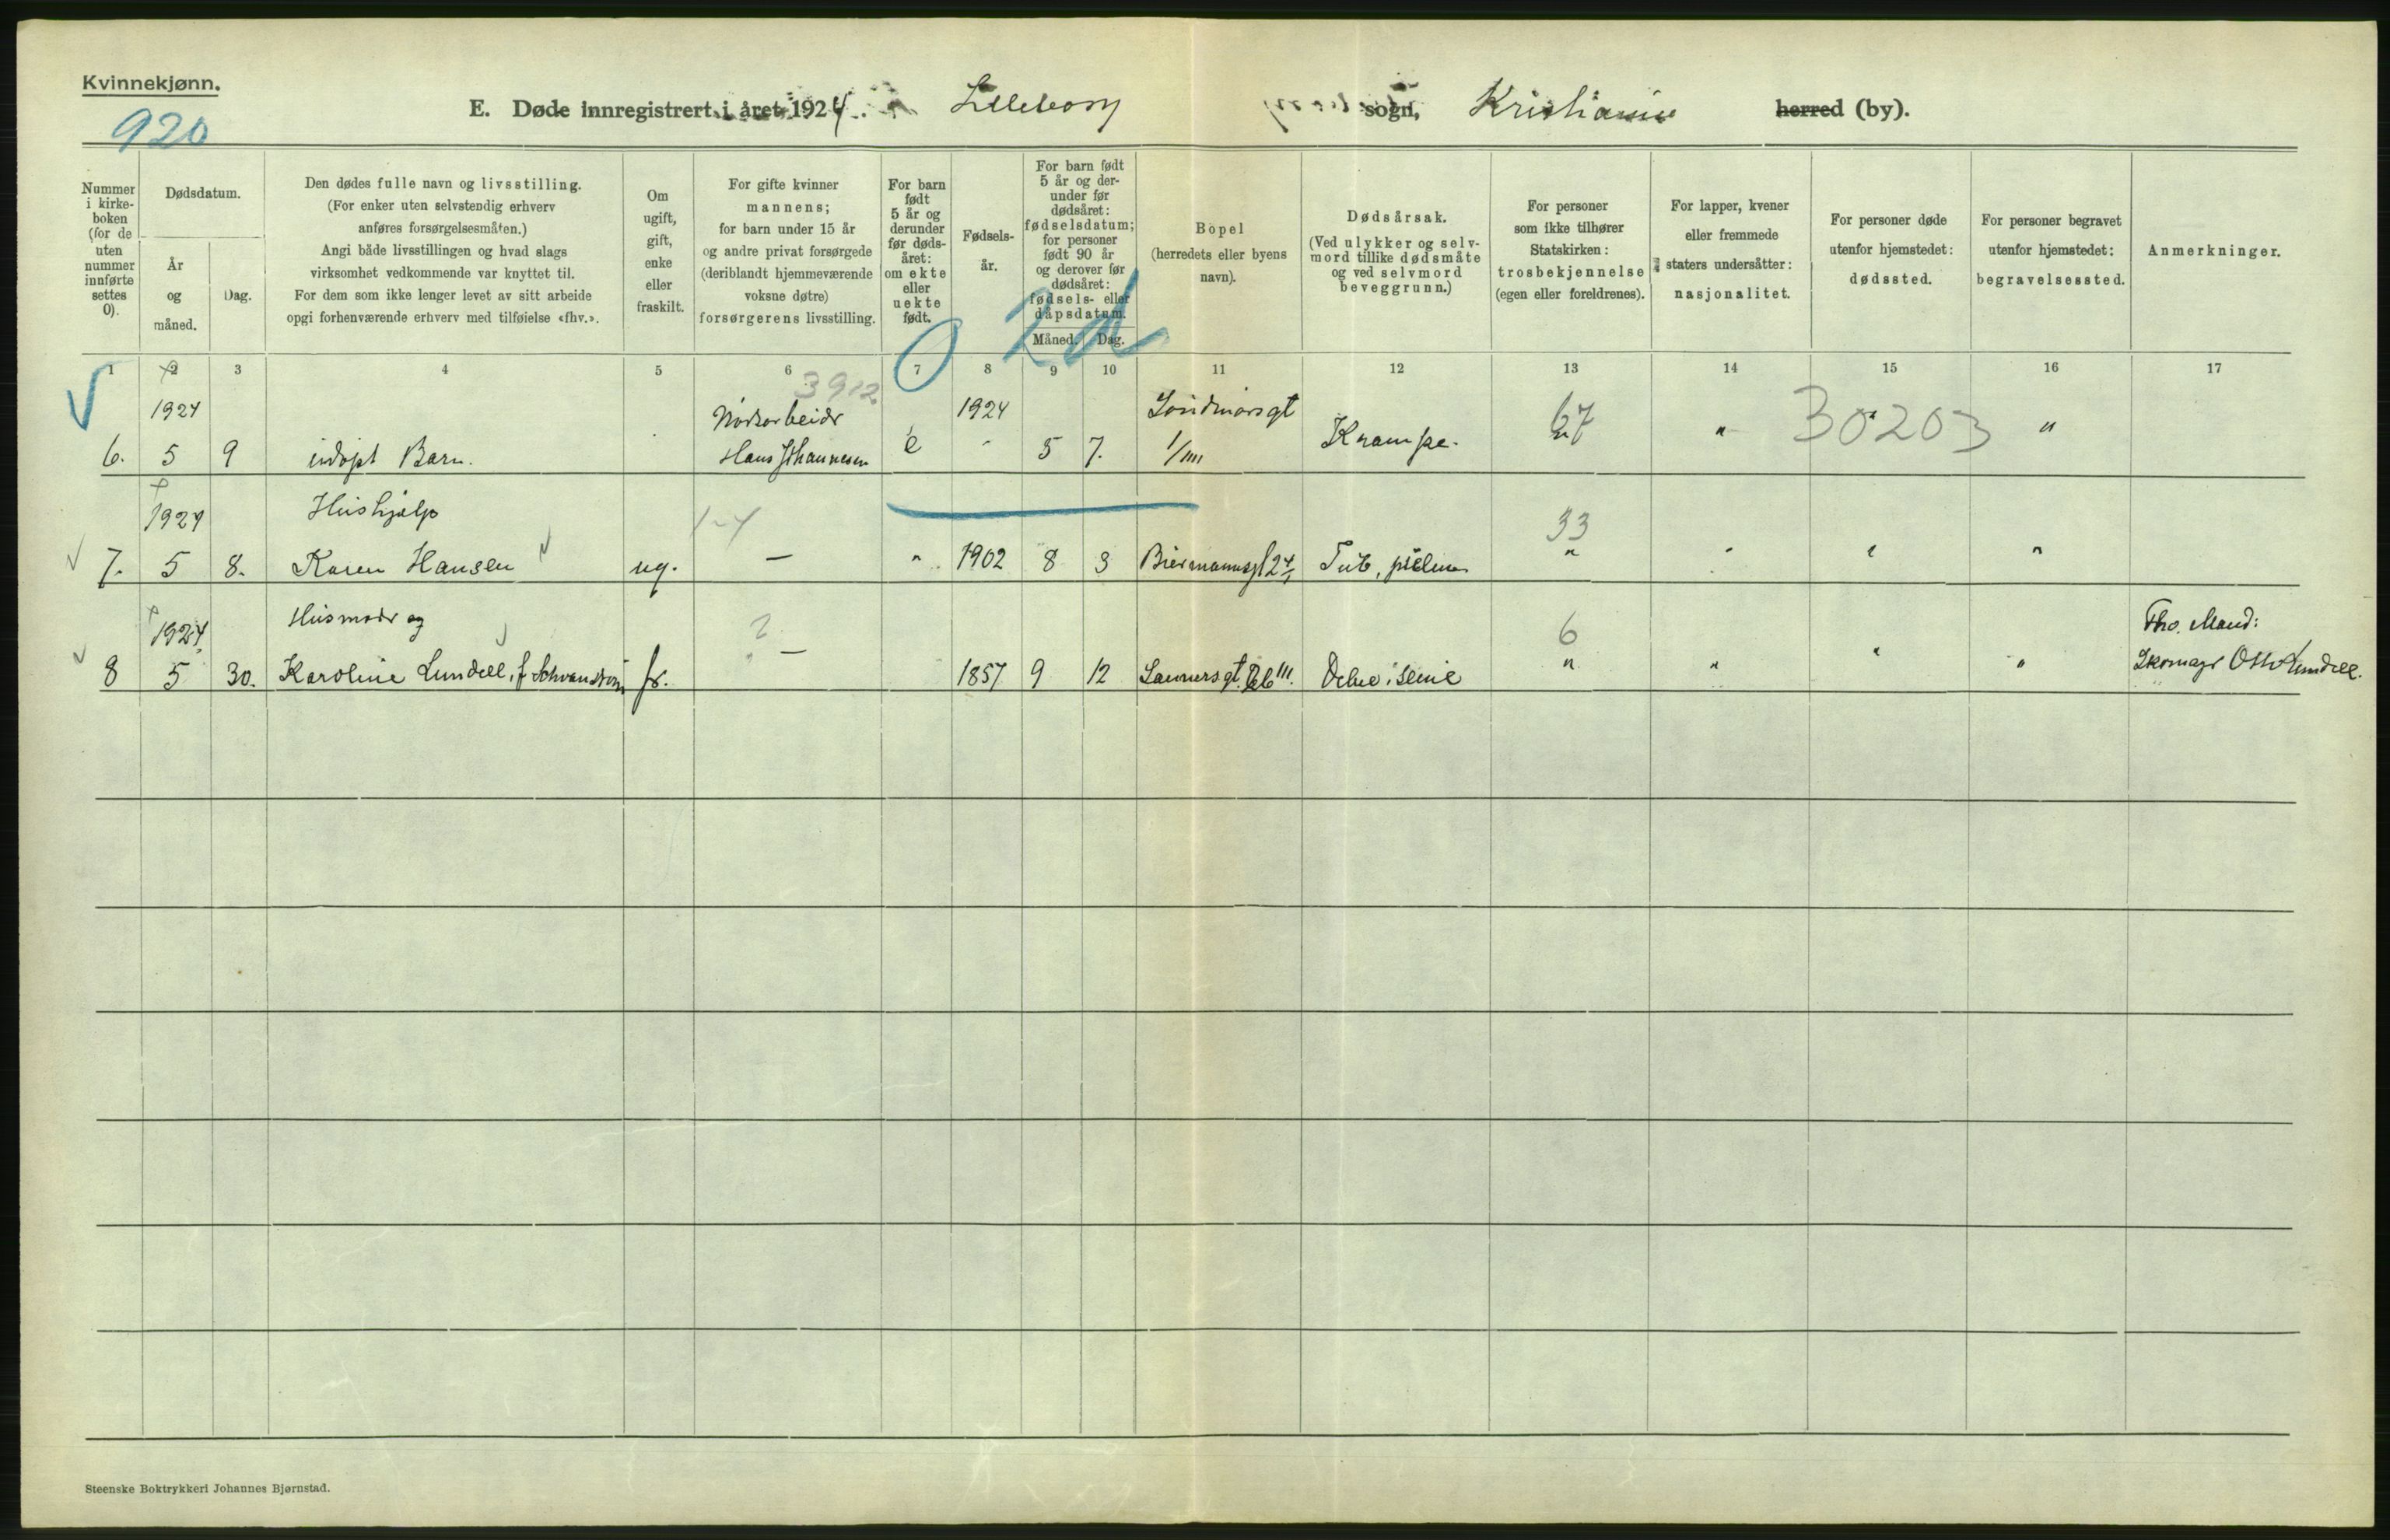 Kvinnekjønn.
920
E. Døde innregistrert i året 1924. Lilleborg sogn, Kristiania herred (by).
Nummer i kirke-boken (for de uten nummer innførte settes 0).
Dødsdatum.
År og måned.
Dag.
Den dødes fulle navn og livsstilling.
(For enker uten selvstendig erhverv
anføres forsørgelsesmåten.)
Angi både livsstillingen og hvad slags
virksomhet vedkommende var knyttet til.
For dem som ikke lenger levet av sitt arbeide
opgi forhenværende erhverv med tilføielse «fhv.».
Om ugift, gift, enke eller fraskilt.
For gifte kvinner
mannens;
for barn under 15 år
og andre privat forsørgede
(deriblandt hjemmeværende
voksne døtre)
forsørgerens livsstilling.
For barn født 5 år og derunder før døds-året: om ekte eller uekte født.
Fødsels-år.
For barn født 5 år og der-under før dødsåret: fødselsdatum; for personer født 90 år og derover før dødsåret: fødsels- eller dåpsdatum.
Måned. Dag.
Bopel
(herredets eller byens
navn).
Dødsårsak.
(Ved ulykker og selv-
mord tillike dødsmåte
og ved selvmord
beveggrunn.)
For personer
som ikke tilhører
Statskirken:
trosbekjennelse
(egen eller foreldrenes).
For lapper, kvener
eller fremmede
staters undersåtter:
nasjonalitet.
For personer døde
utenfor hjemstedet:
dødssted.
For personer begravet
utenfor hjemstedet:
begravelsessted.
Anmerkninger.
0 2d
1 2 3 4 5 6 7 8 9 10 11 12 13 14 15 16 17
3912
1924 1924 67 30203
6. 5 9 udøpt Barn. Hans Johannesen e " 5 7. 1/III Krampe. " " " "
1924 Hushjelp 1-4 33
7. 5 8. Karen Hansen ug. — " 1902 8 3 Biermannsgt 24/I Tub. pulm. " " " "
1924 Husmoder og ? 6 Fhv. Mand:
8 5 30. Karoline Lundell, f. fr. — 1857 9 12 III. " " " " Skomager Lundell.
Steenske Boktrykkeri Johannes Bjørnstad.